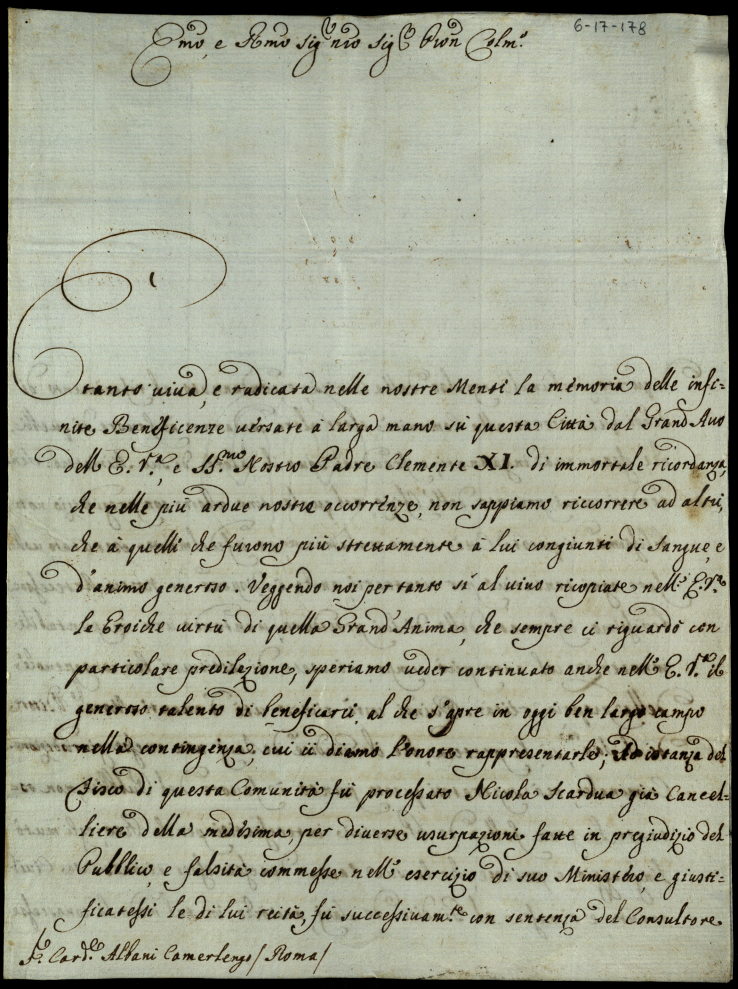 6-17-178
Emo, e Rmo sig.r nro sig.r Pron Colmo.
È tanto viva, e radicata nelle nostre Menti la memoria delle infi=
nite Beneficenze versate à larga mano sù questa Città dal Grand'Avo
dell'E. V.ra, e SS.mo Nostro Padre Clemente XI. di immortale ricordanza,
che nelle più ardue nostre occorrenze, non sappiamo riccorrere ad altri,
che à quelli che furono più strettamente à lui congiunti di Sangue, e
d'animo generoso. Veggendo noi per tanto sì al vivo ricopiate nell'E. V.ra
le Eroiche virtù di quella Grand'Anima, che sempre ci riguardò con
particolare predilazione, speriamo veder continuato anche nell'E. V.ra il
generoso talento di beneficarci, al che s'apre in oggi ben largo campo
nella contingenza, cui ci diamo l'onore rappresentarle. Ad istanza del
Fisco di questa Comunità fù processato Nicola Scardua già Cancel=
liere della medesima, per diverse usurpazioni fatte in pregiudizio del
Pubblico, e falsità commesse nell'esercizio di suo Ministéro, e giusti=
ficatesi le di lui reità, fù successivam.te con sentenza del Consultore
Sr. Card.le Albani Camerlengo / Roma /